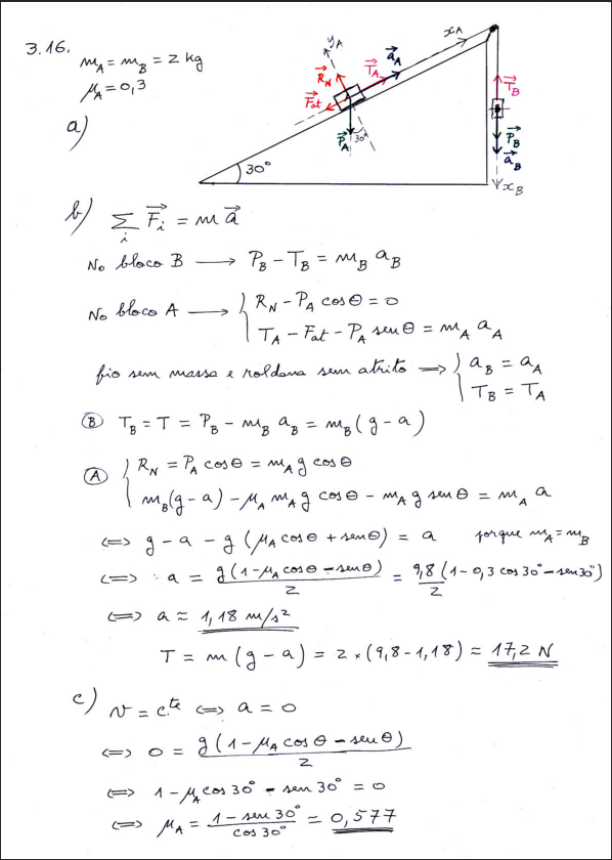 3.16.
m_A = m_B = 2 kg
μ_A = 0,3
a)
y_A
x_A
a_A→
T_A→
R_N→
F_at→
P_A→
30°
30°
T_B→
P_B→
a_B→
x_B
b) Σ_i F_i→ = m a→
No bloco B ⟶ P_B - T_B = m_B a_B
No bloco A ⟶ { R_N - P_A cos θ = 0
T_A - F_at - P_A sen θ = m_A a_A
fio sem massa e roldana sem atrito ⟶ { a_B = a_A
T_B = T_A
Ⓑ T_B = T = P_B - m_B a_B = m_B (g - a)
Ⓐ { R_N = P_A cos θ = m_A g cos θ
m_B (g - a) - μ_A m_A g cos θ - m_A g sen θ = m_A a
⟺ g - a - g (μ_A cos θ + sen θ) = a porque m_A = m_B
⟺ a = g (1 - μ_A cos θ - sen θ) / 2 = 9,8 (1 - 0,3 cos 30° - sen 30°) / 2
⟺ a ≈ 1,18 m/s²
T = m (g - a) = 2 × (9,8 - 1,18) ≈ 17,2 N
c) v = c^te ⟺ a = 0
⟺ 0 = g (1 - μ_A cos θ - sen θ) / 2
⟺ 1 - μ_A cos 30° - sen 30° = 0
⟺ μ_A = (1 - sen 30°) / cos 30° = 0,577